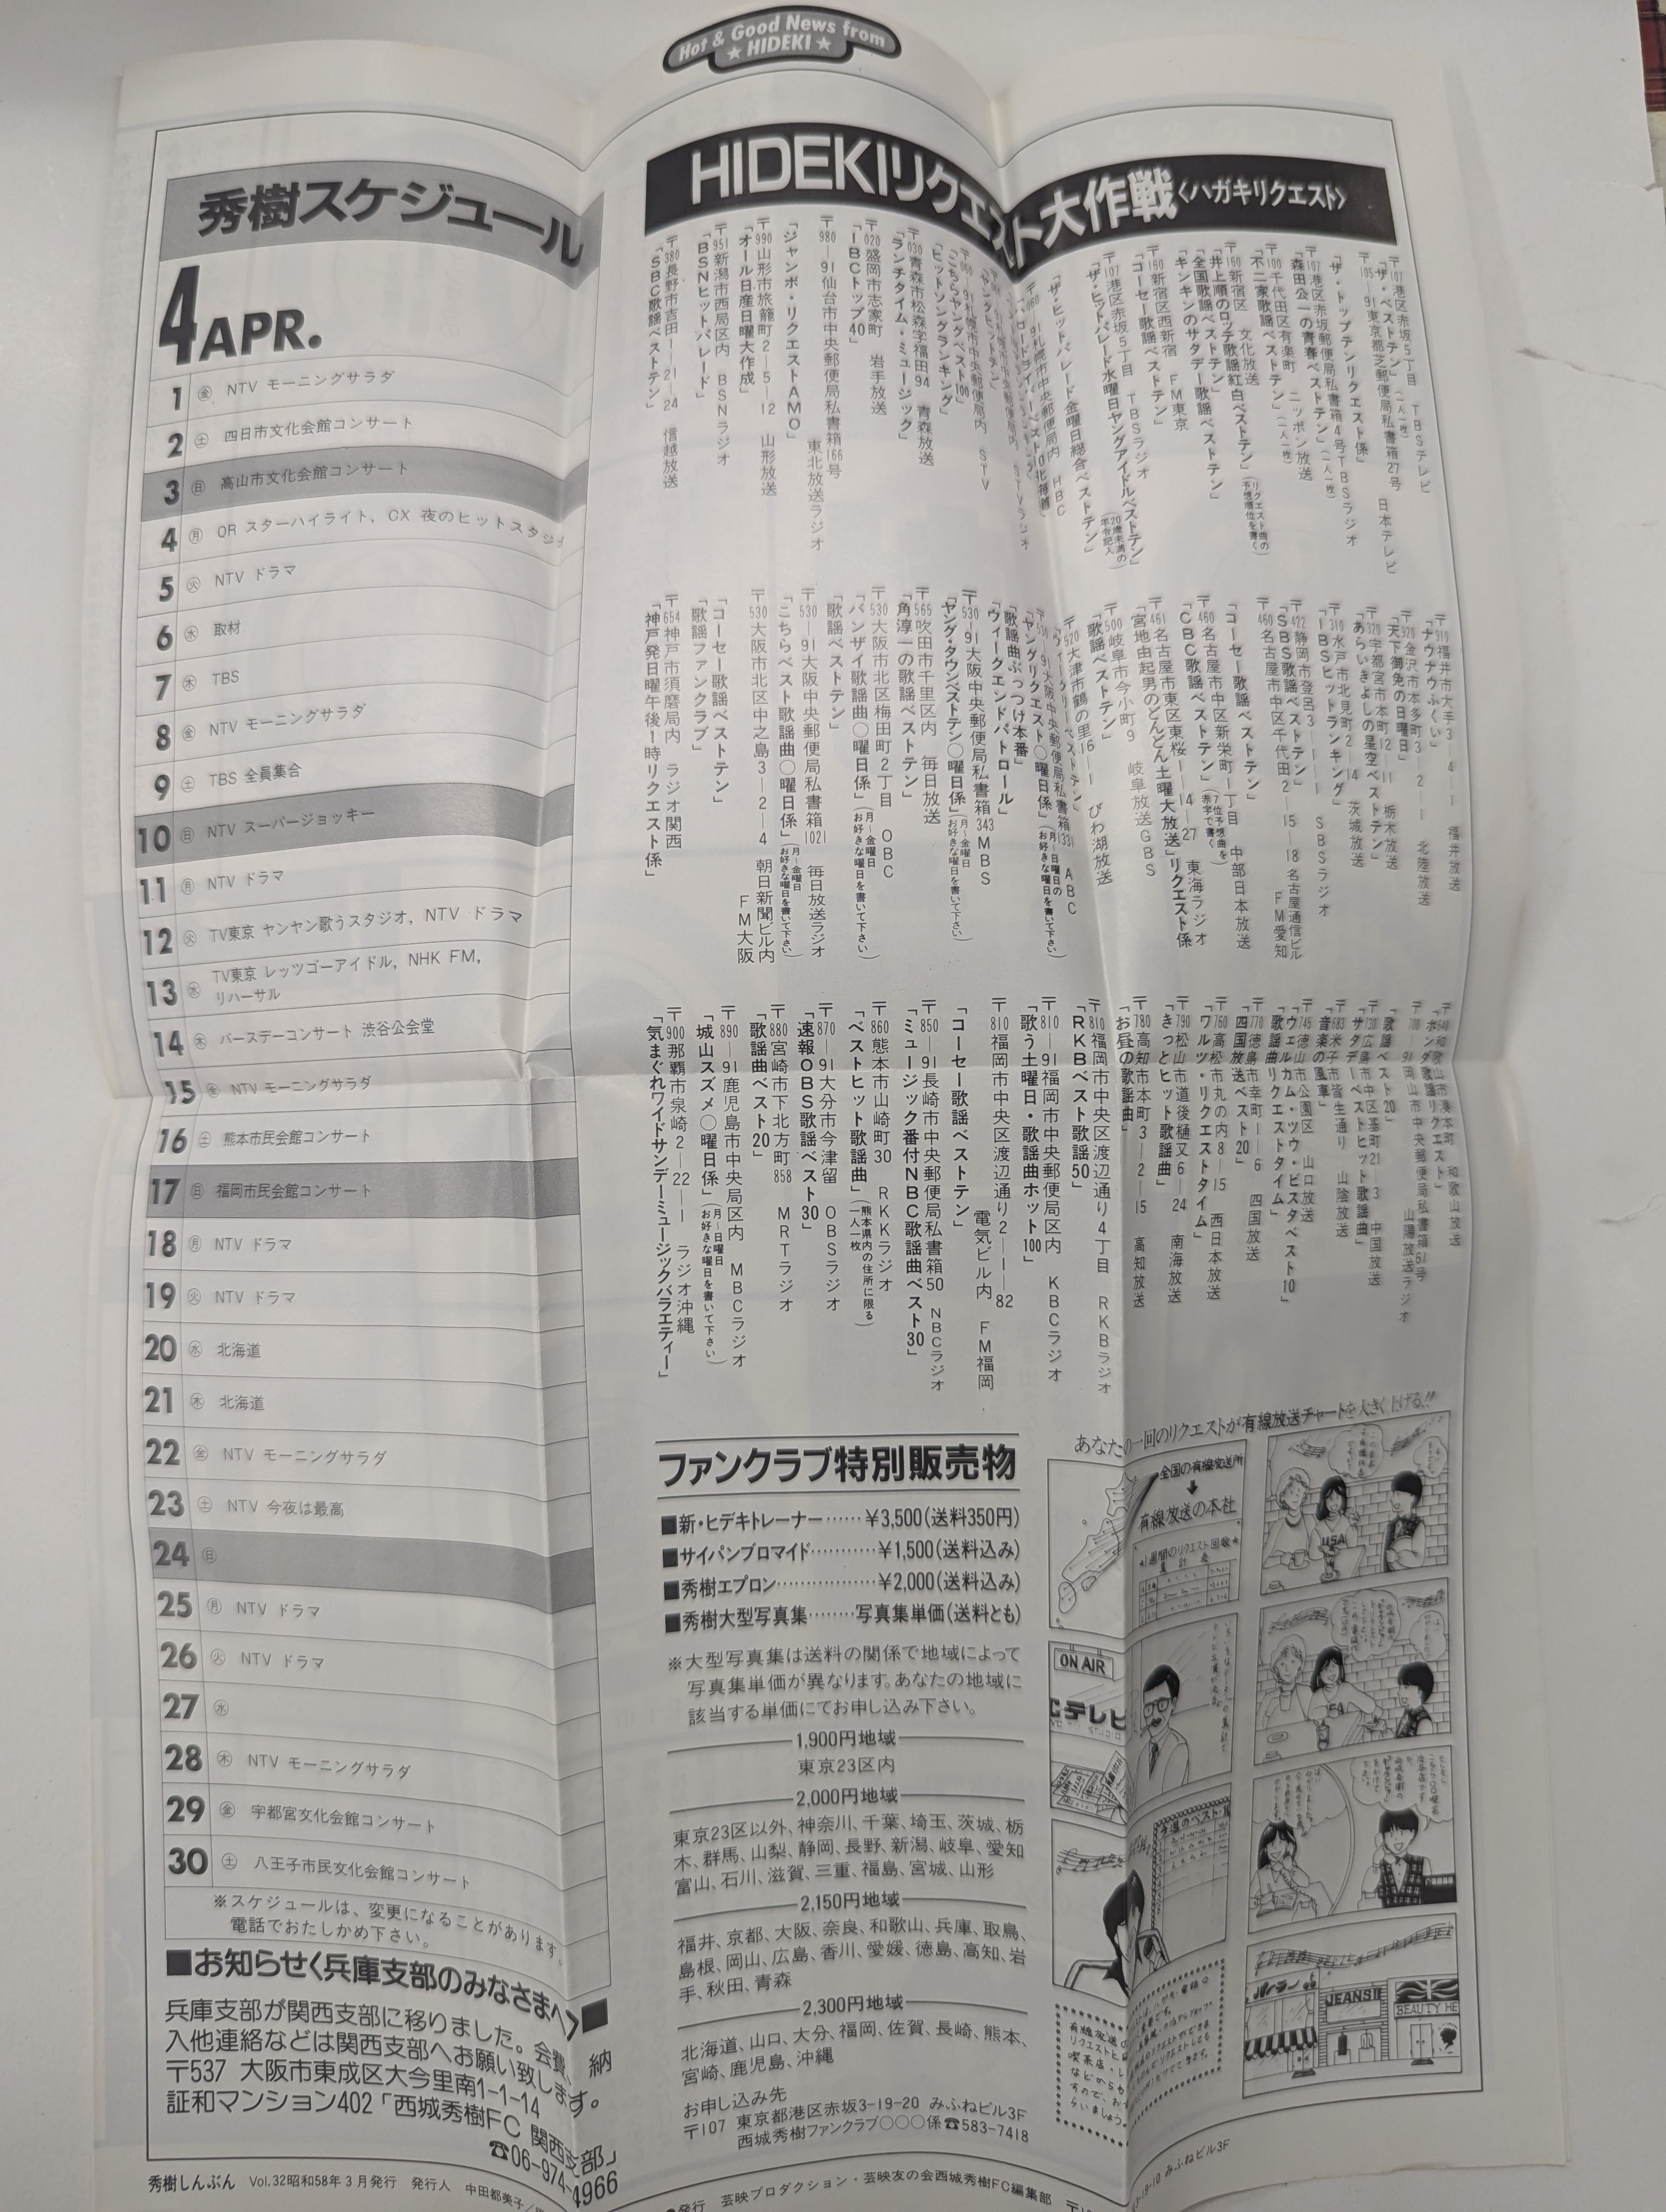 Hot & Good News from
★ HIDEKI ★
秀樹スケジュール
4 APR.
1 金 NTV モーニングサラダ
2 土 四日市文化会館コンサート
3 日 高山市文化会館コンサート
4 月 QR スターハイライト, CX 夜のヒットスタジオ
5 火 NTV ドラマ
6 水 取材
7 木 TBS
8 金 NTV モーニングサラダ
9 土 TBS 全員集合
10 日 NTV スーパージョッキー
11 月 NTV ドラマ
12 火 TV東京 ヤンヤン歌うスタジオ, NTV ドラマ
13 水 TV東京 レッツゴーアイドル, NHK FM,
リハーサル
14 木 バースデーコンサート 渋谷公会堂
15 金 NTV モーニングサラダ
16 土 熊本市民会館コンサート
17 日 福岡市民会館コンサート
18 月 NTV ドラマ
19 火 NTV ドラマ
20 水 北海道
21 木 北海道
22 金 NTV モーニングサラダ
23 土 NTV 今夜は最高
24 日
25 月 NTV ドラマ
26 火 NTV ドラマ
27 水
28 木 NTV モーニングサラダ
29 金 宇都宮文化会館コンサート
30 土 八王子市民文化会館コンサート
※スケジュールは、変更になることがあります。
電話でおたしかめ下さい。
■お知らせ〈兵庫支部のみなさまへ〉■
兵庫支部が関西支部に移りました。会費、納
入他連絡などは関西支部へお願い致します。
〒537 大阪市東成区大今里南1-1-14
証和マンション402「西城秀樹FC 関西支部」
☎06-974-4966
HIDEKIリクエスト大作戦〈ハガキリクエスト〉
〒107港区赤坂5丁目 TBSテレビ
「ザ・ベストテン」(一人一枚)
〒105―91東京都芝郵便局私書箱27号 日本テレビ
「ザ・トップテンリクエスト係」
〒107港区赤坂郵便局私書箱4号TBSラジオ
「森田公一の青春ベストテン」(一人一枚)
〒100千代田区有楽町 ニッポン放送
「不二家歌謡ベストテン」(一人一枚)
〒160新宿区 文化放送
「井上順のロッテ歌謡紅白ベストテン」(リクエスト曲の予想順位を書く)
「全国歌謡ベストテン」
「キンキンのサタデー歌謡ベストテン」
〒160新宿区西新宿 FM東京
「コーセー歌謡ベストテン」
〒107港区赤坂5丁目 TBSラジオ
「ザ・ヒットパレード水曜日ヤングアイドルベストテン」(20歳未満の年令記入)
「ザ・ヒットパレード金曜日総合ベストテン」
「ヒットソングランキング」
「こちらヤングベスト100」
〒030青森市松森字福田94 青森放送
「ランチタイム・ミュージック」
〒020盛岡市志家町 岩手放送
「IBCトップ40」
〒980―91仙台市中央郵便局私書箱166号 東北放送ラジオ
「ジャンボ・リクエストAMO」
〒990山形市旅籠町2―5―12 山形放送
「オール日産日曜大作成」
〒951新潟市西局区内 BSNラジオ
「BSNヒットパレード」
〒380長野市吉田1―21―24 信越放送
「SBC歌謡ベストテン」
〒910福井市大手3―4―1 福井放送
「ナウナウふくい」
〒920金沢市本多町3―2―1 北陸放送
「天下御免の日曜日」
〒320宇都宮市本町12―11 栃木放送
「あらいきよしの星空ベストテン」
〒310水戸市北見町2―14 茨城放送
「IBSヒットランキング」
〒422静岡市登呂3―1―1 SBSラジオ
「SBS歌謡ベストテン」
〒460名古屋市中区千代田2―15―18名古屋通信ビル FM愛知
「コーセー歌謡ベストテン」
〒460名古屋市中区新栄町1丁目 中部日本放送
「CBC歌謡ベストテン」(7位予想曲を赤字で書く)
〒461名古屋市東区東桜1―14―27 東海ラジオ
「宮地由起男のどんどん土曜大放送」リクエスト係
〒500岐阜市今小町9 岐阜放送GBS
「歌謡ベストテン」
〒520大津市鶴の里16―1 びわ湖放送
〒530―91大阪中央郵便局私書箱1331 ABC
「ヤングリクエスト〇曜日係」(月~日曜日のお好きな曜日を書いて下さい)
「歌謡曲ぶっつけ本番」
「ウィークエンドパトロール」
〒530―91大阪中央郵便局私書箱343 MBS
「ヤング・タウンベストテン〇曜日係」(月~金曜日お好きな曜日を書いて下さい)
〒565吹田市千里区内 毎日放送
「角淳一の歌謡ベストテン」
〒530大阪市北区梅田町2丁目 OBC
「バンザイ歌謡曲〇曜日係」(月~金曜日お好きな曜日を書いて下さい)
「歌謡ベストテン」
〒530―91大阪中央郵便局私書箱1021 毎日放送ラジオ
「こちらベスト歌謡曲〇曜日係」(月~金曜日お好きな曜日を書いて下さい)
〒530大阪市北区中之島3―2―4 朝日新聞ビル内 FM大阪
「コーセー歌謡ベストテン」
「歌謡ファンクラブ」
〒654神戸市須磨局内 ラジオ関西
「神戸発日曜午後1時リクエスト係」
〒640和歌山市湊本町 和歌山放送
〒700―91岡山市中央郵便局私書箱61号 山陽放送ラジオ
「歌謡ベスト20」
〒730広島市中区基町21―3 中国放送
「サタデーベストヒット歌謡曲」
〒683米子市皆生通り 山陰放送
「音楽の風車」
〒745徳山市公園区 山口放送
「ウェルカム・ツウ・ビスタベスト10」
「歌謡曲リクエストタイム」
〒770徳島市幸町1―6 四国放送
「四国放送ベスト20」
〒760高松市丸の内8―15 西日本放送
「ワルツ・リクエストタイム」
〒790松山市道後樋又6―24 南海放送
「きっとヒット歌謡曲」
〒780高知市本町3―2―15 高知放送
「お昼の歌謡曲」
〒810福岡市中央区渡辺通り4丁目 RKBラジオ
「RKBベスト歌謡50」
〒810―91福岡市中央郵便局区内 KBCラジオ
「歌う土曜日・歌謡曲ホット100」
〒810福岡市中央区渡辺通り2―1―82 電気ビル内 FM福岡
「コーセー歌謡ベストテン」
〒850―91長崎市中央郵便局私書箱50 NBCラジオ
「ミュージック番付NBC歌謡曲ベスト30」
〒860熊本市山崎町30 RKKラジオ
「ベストヒット歌謡曲」(熊本県内の住所に限る 一人一枚)
〒870―91大分市今津留 OBSラジオ
「速報OBS歌謡ベスト30」
〒880宮崎市下北方町858 MRTラジオ
「歌謡曲ベスト20」
〒890―91鹿児島市中央局区内 MBCラジオ
「城山スズメ〇曜日係」(月~日曜日お好きな曜日を書いて下さい)
〒900那覇市泉崎2―22―1 ラジオ沖縄
「気まぐれワイドサンデーミュージックバラエティー」
ファンクラブ特別販売物
■新・ヒデキトレーナー……¥3,500(送料350円)
■サイパンブロマイド…………¥1,500(送料込み)
■秀樹エプロン………………¥2,000(送料込み)
■秀樹大型写真集………写真集単価(送料とも)
※大型写真集は送料の関係で地域によって
写真集単価が異なります。あなたの地域に
該当する単価にてお申し込み下さい。
1,900円地域
東京23区内
2,000円地域
東京23区以外、神奈川、千葉、埼玉、茨城、栃
木、群馬、山梨、静岡、長野、新潟、岐阜、愛知
富山、石川、滋賀、三重、福島、宮城、山形
2,150円地域
福井、京都、大阪、奈良、和歌山、兵庫、取鳥、
島根、岡山、広島、香川、愛媛、徳島、高知、岩
手、秋田、青森
2,300円地域
北海道、山口、大分、福岡、佐賀、長崎、熊本、
宮崎、鹿児島、沖縄
お申し込み先
〒107 東京都港区赤坂3-19-20 みふねビル3F
西城秀樹ファンクラブ〇〇〇係☎583-7418
あなたの一回のリクエストが有線放送チャートを大きく上げる!!
全国の有線放送所
有線放送の本社
USA
ON AIR
Cテレビ
パーラー
JEANS
BEAUTY HE
秀樹しんぶん Vol.32昭和58年3月発行 発行人 中田都美子
●発行 芸映プロダクション・芸映友の会西城秀樹FC編集部
3-19-10 みふねビル3F